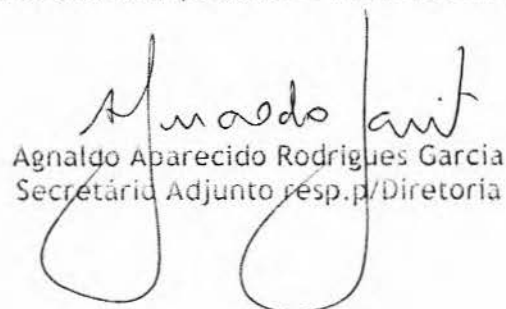 Agnaldo
Agnaldo Aparecido Rodrigues Garcia
Secretário Adjunto resp.p/Diretoria